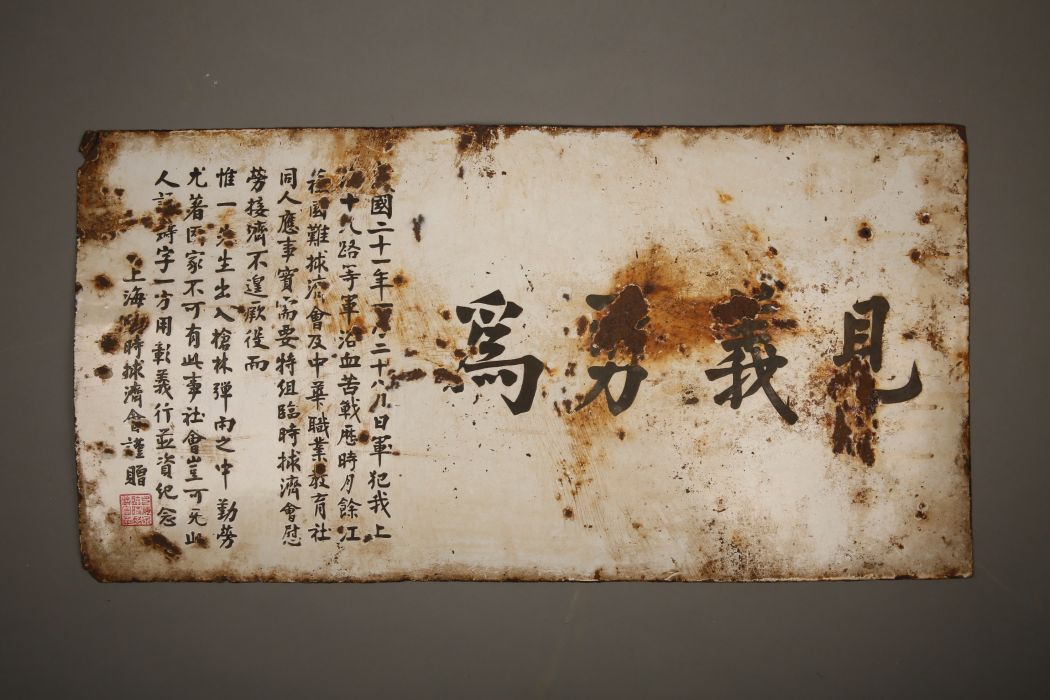 見義勇為
國二十一年一月二十八日軍犯我上
十九路等軍浴血苦戰歷時月餘江
蘇國難捄濟會及中華職業教育社
同人應事實需要特組臨時捄濟會慰
勞接濟不遑厥後而
惟一先生出入槍林彈雨之中勤勞
尤著國家不可有此事社會豈可无此
人 字一方用彰義行並資紀念
上海臨時捄濟會謹贈